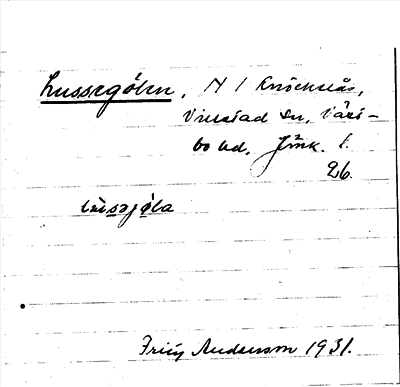 Lussegölen, N 1 Knöckelås,
Villstad sn, Väst-
bo hd, Jönk. l.
26.
lùsəgjöla
Fritz Andersson 1931.